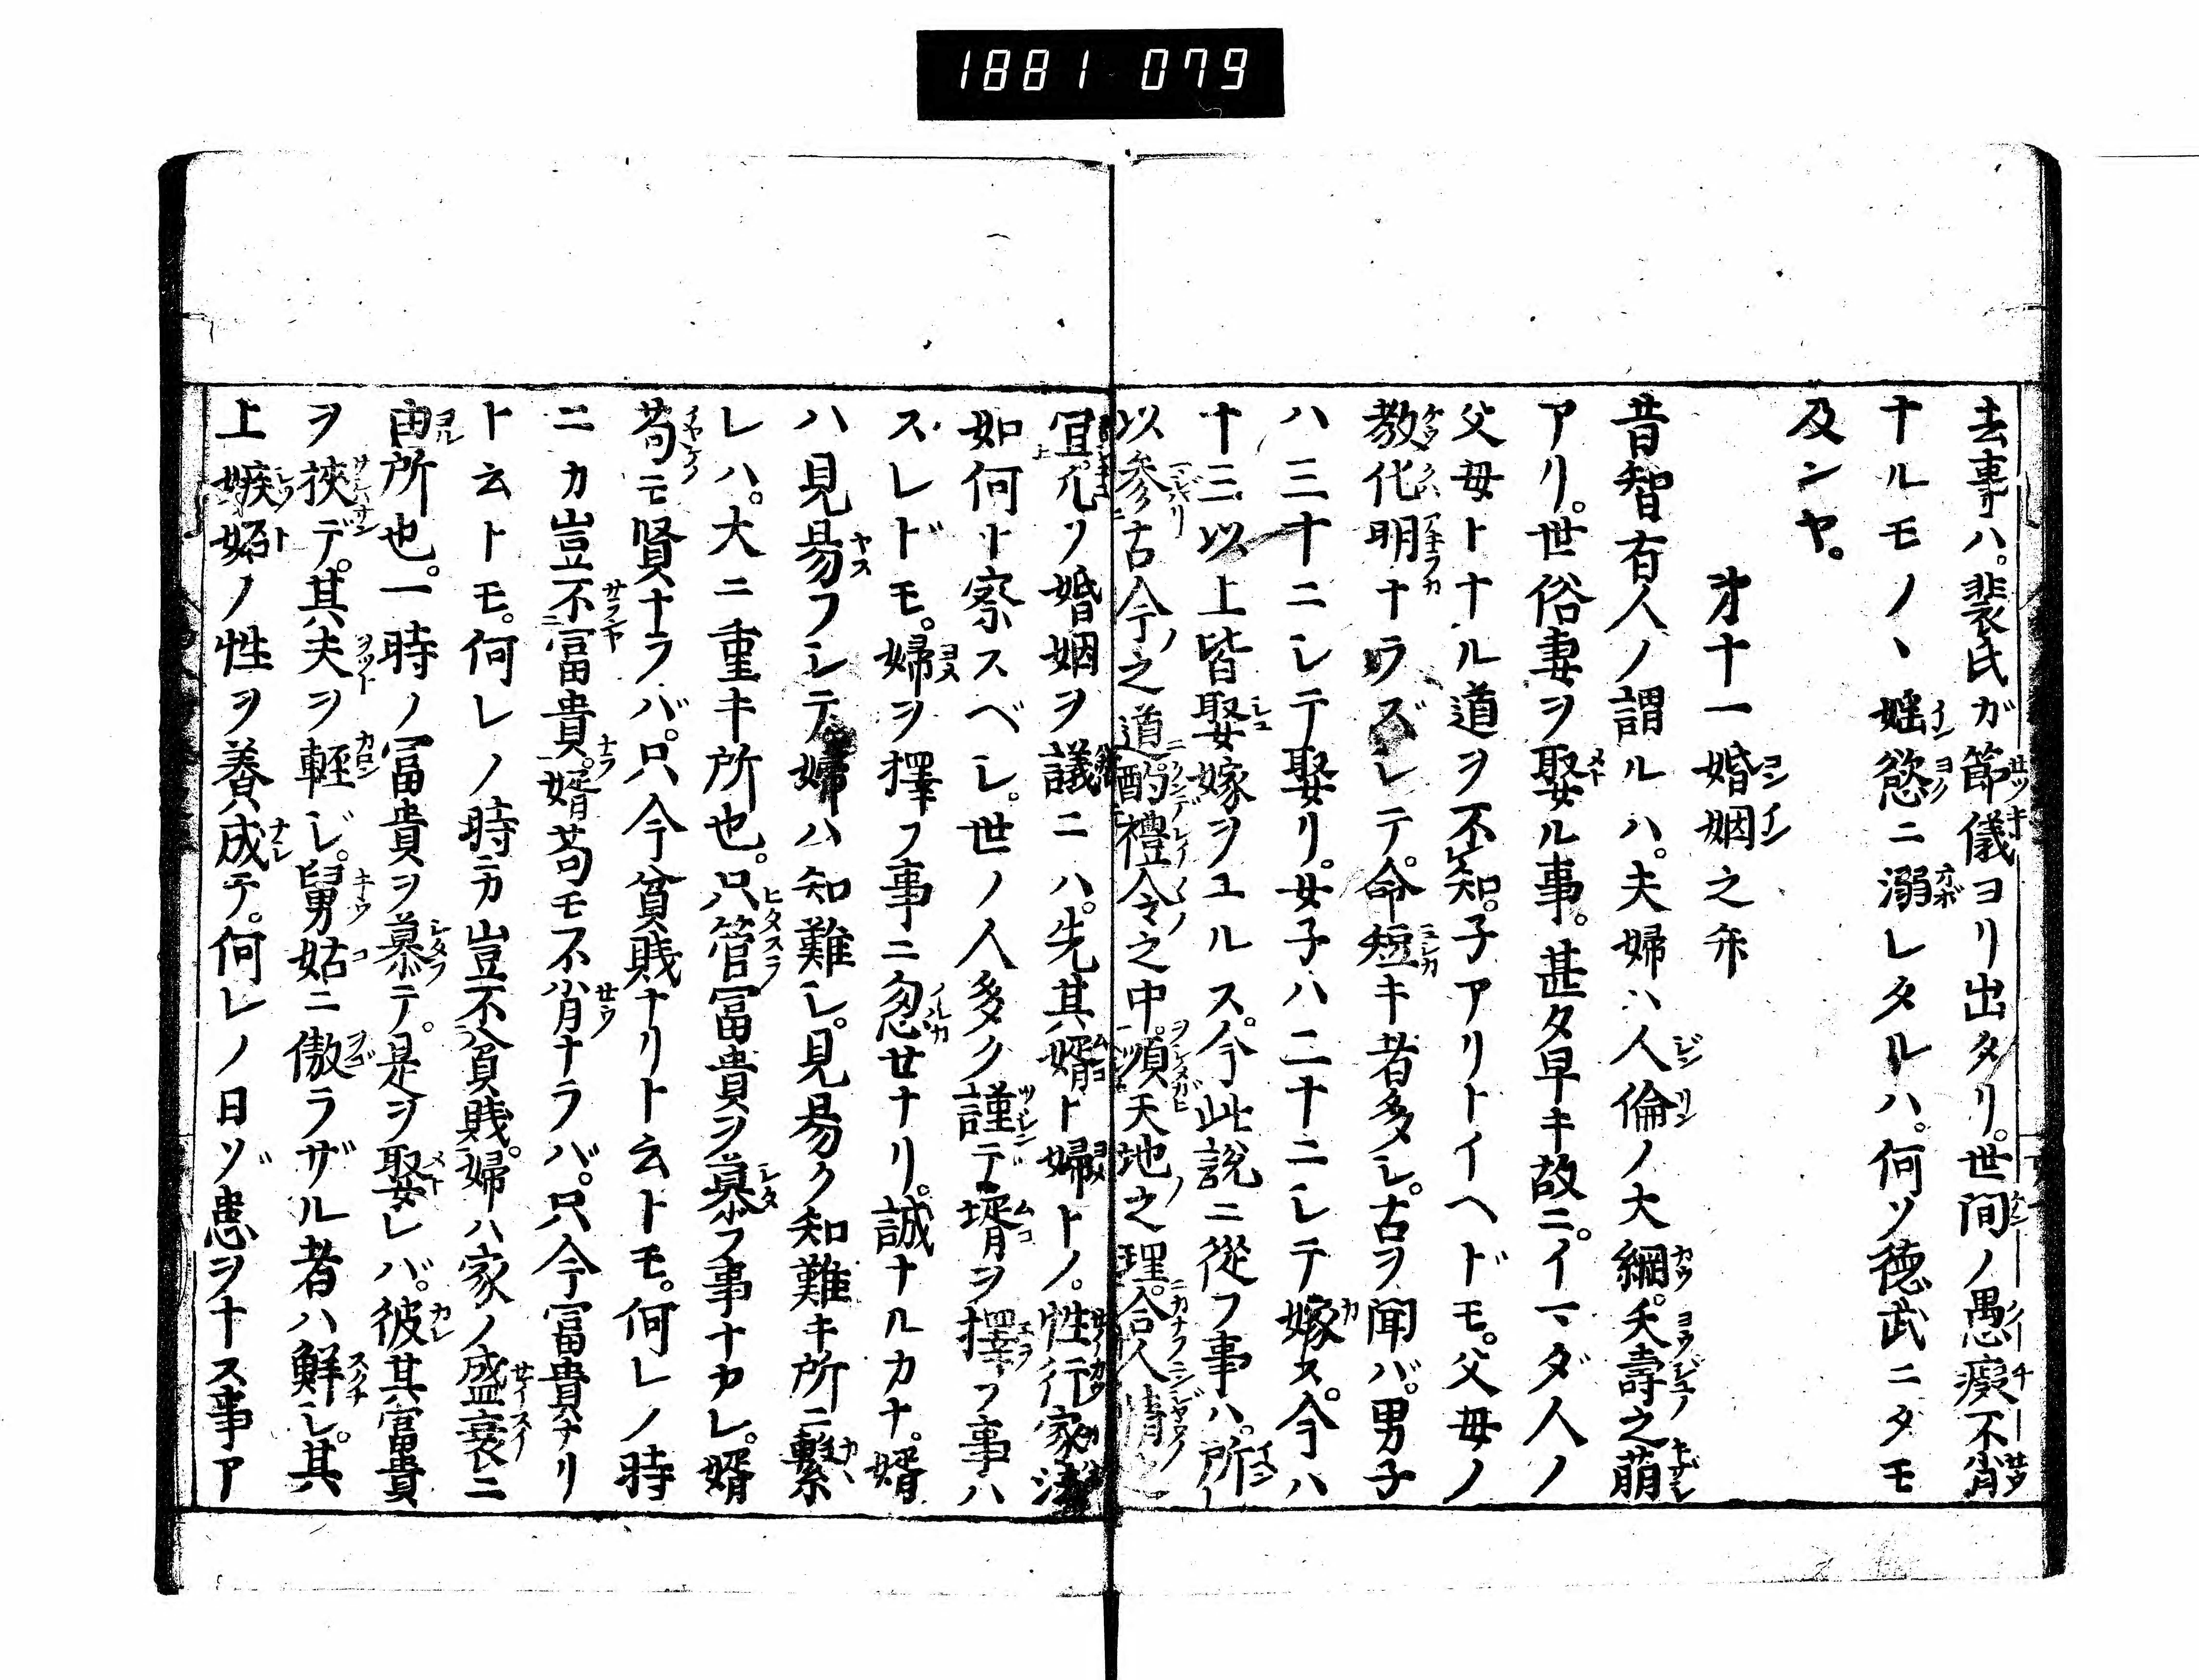 1881 079
去事ハ。裴氏ガ節儀ヨリ出タリ。世間ノ愚癡不肖
ナルモノヽ婬慾ニ溺レタルハ。何ゾ徳武ニタモ
及ンヤ。
㐧十一婚姻之弁
昔智有人ノ謂ルハ。夫婦ハ人倫ノ大綱。夭壽之萠
アリ。世俗妻ヲ娶ル事。甚タ早キ故ニ。イマダ人ノ
父母トナル道ヲ不知。子アリトイヘドモ。父母ノ
教化明ナラズシテ。命短キ者多シ。古ヲ聞バ。男子
ハ三十ニシテ娶リ。女子ハ二十ニシテ嫁ス。今ハ
十三以上皆娶嫁ヲユルス。今此説ニ從フ事ハ。所
以参古今之道。酌禮令之中。順天地之理。合人情之
宜。凡ソ婚姻ヲ議ニハ。先其婿ト婦トノ。性行家法
如何ト察スベシ。世ノ人多ク謹デ壻ヲ擇フ事ハ
スレドモ。婦ヲ擇フ事ニ忽セナリ。誠ナルカナ。婿
ハ見昜フシテ婦ハ知難シ。見昜ク知難キ所ニ繫
レハ。大ニ重キ所也。只管冨貴ヲ慕フ事ナカレ。婿
苟モ賢ナラバ。只今貧賎ナリト云トモ。何レノ時
ニカ豈不冨貴。婿苟モ不肖ナラバ。只今冨貴ナリ
ト云トモ。何レノ時ニカ豈不貧賎。婦ハ家ノ盛衰ニ
由所也。一時ノ冨貴ヲ慕テ。是ヲ娶レバ。彼其富貴
ヲ挾デ。其夫ヲ輕ジ。舅姑ニ傲ラザル者ハ鮮シ。其
上嫉妬ノ性ヲ養成テ。何レノ日ゾ患ヲナス事ア